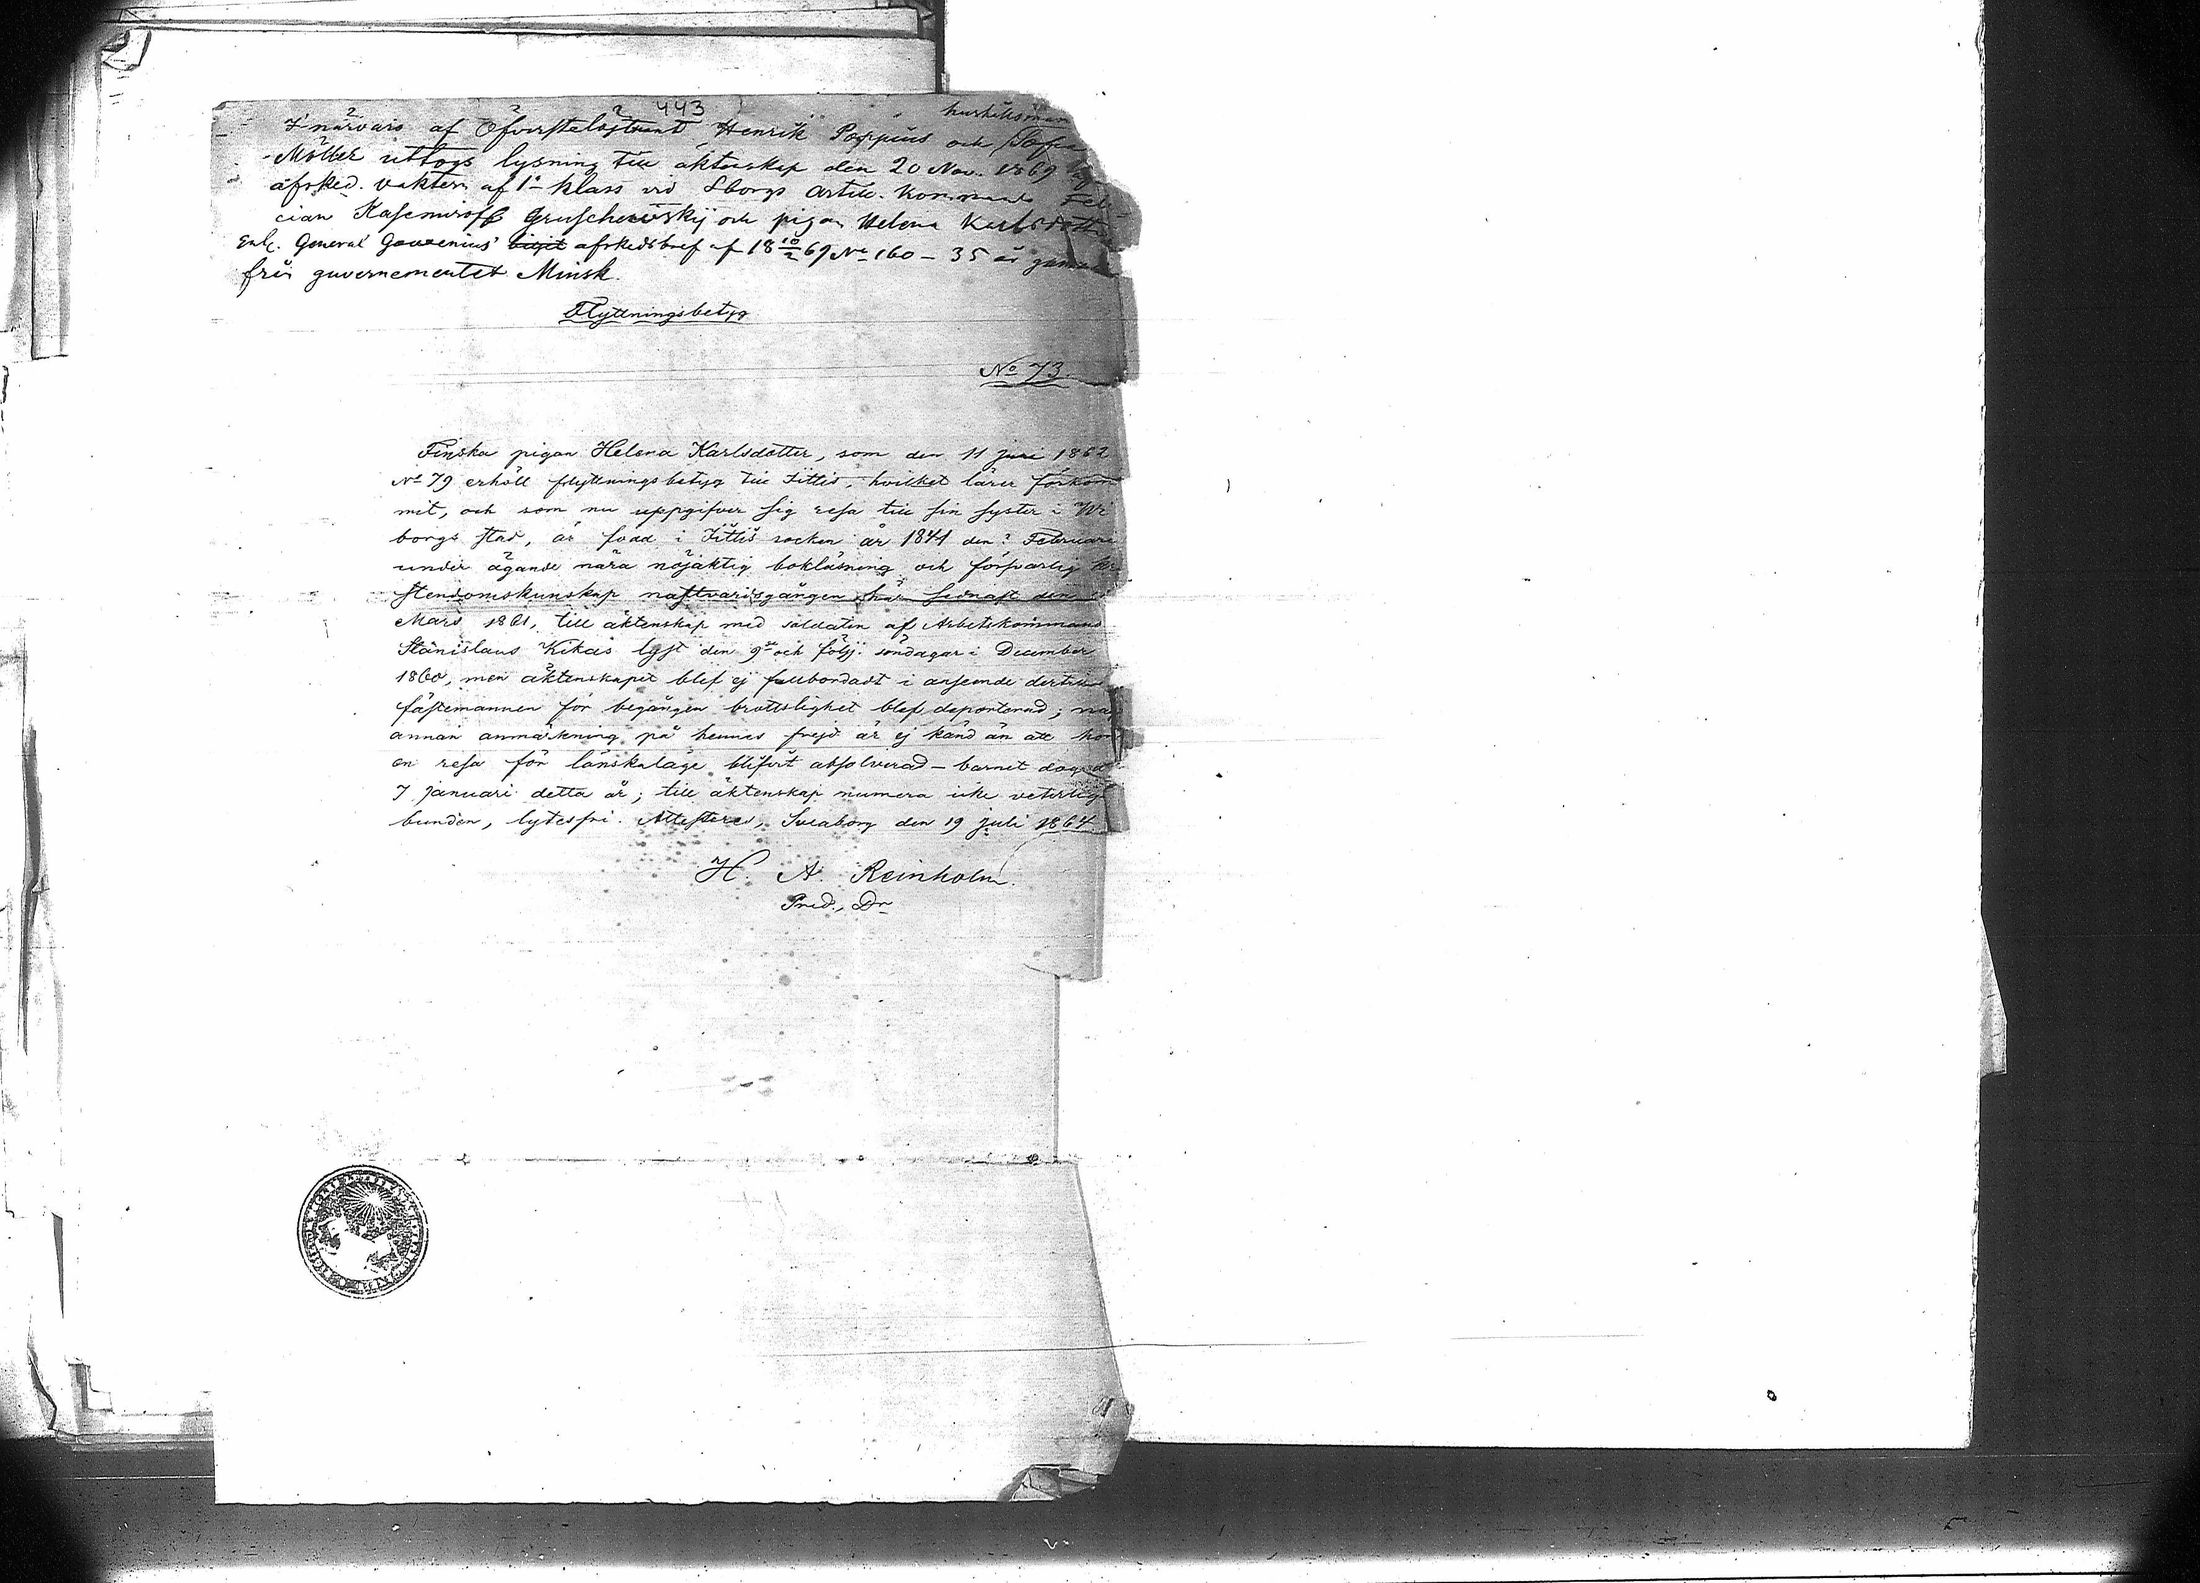 443
hushållsman
I närvaro af Öfverstelöjtnant Henrik Poppius och Sofia
Möller uttogs lysning till äktenskap den 20 Nov. 1869
afsked. vaktern af 1a klass vid Sborgs Artill. Kommando Feli-
cian Kasemiroff Gruschewskij och pigan Helena Karlsdotter
Enl. General afskedsbref af 18 10/2 69 No 160 – 35 år gammal
från guvernementet Minsk.
Flyttningsbetyg
No 73.
Finska pigan Helena Karlsdotter, som den 11 juni 1862
No 79 erhöll flyttningsbetyg till Jittis, hvilket lärer förkom
mit, och som nu uppgifver sig resa till sin syster i Wi
borgs stad, är född i Jittis socken år 1841 den ? Februari
under ägande nära nöjaktig bokläsning och försvarlig kri
stendomskunskap nattvardsgången här sednast den
Mars 1861, till äktenskap med soldaten af Arbetskommand
Stanislaus Kikas lyst den 9de och följ. söndagar i December
1860, men äktenskapet blef ej fullbordadt i anseende dertill
fästemannen för begången brottslighet blef deporterad; någ
annan anmärkning på hennes frejd är ej känd än att hon
en resa för lönskaläge blifvit absolverad – barnet dog d.
7 januari detta år; till äktenskap numera icke veterligt
bunden, lytesfri. Attesteras, Sveaborg den 19 juli 1864
H. A. Reinholm.
Pred., Dr